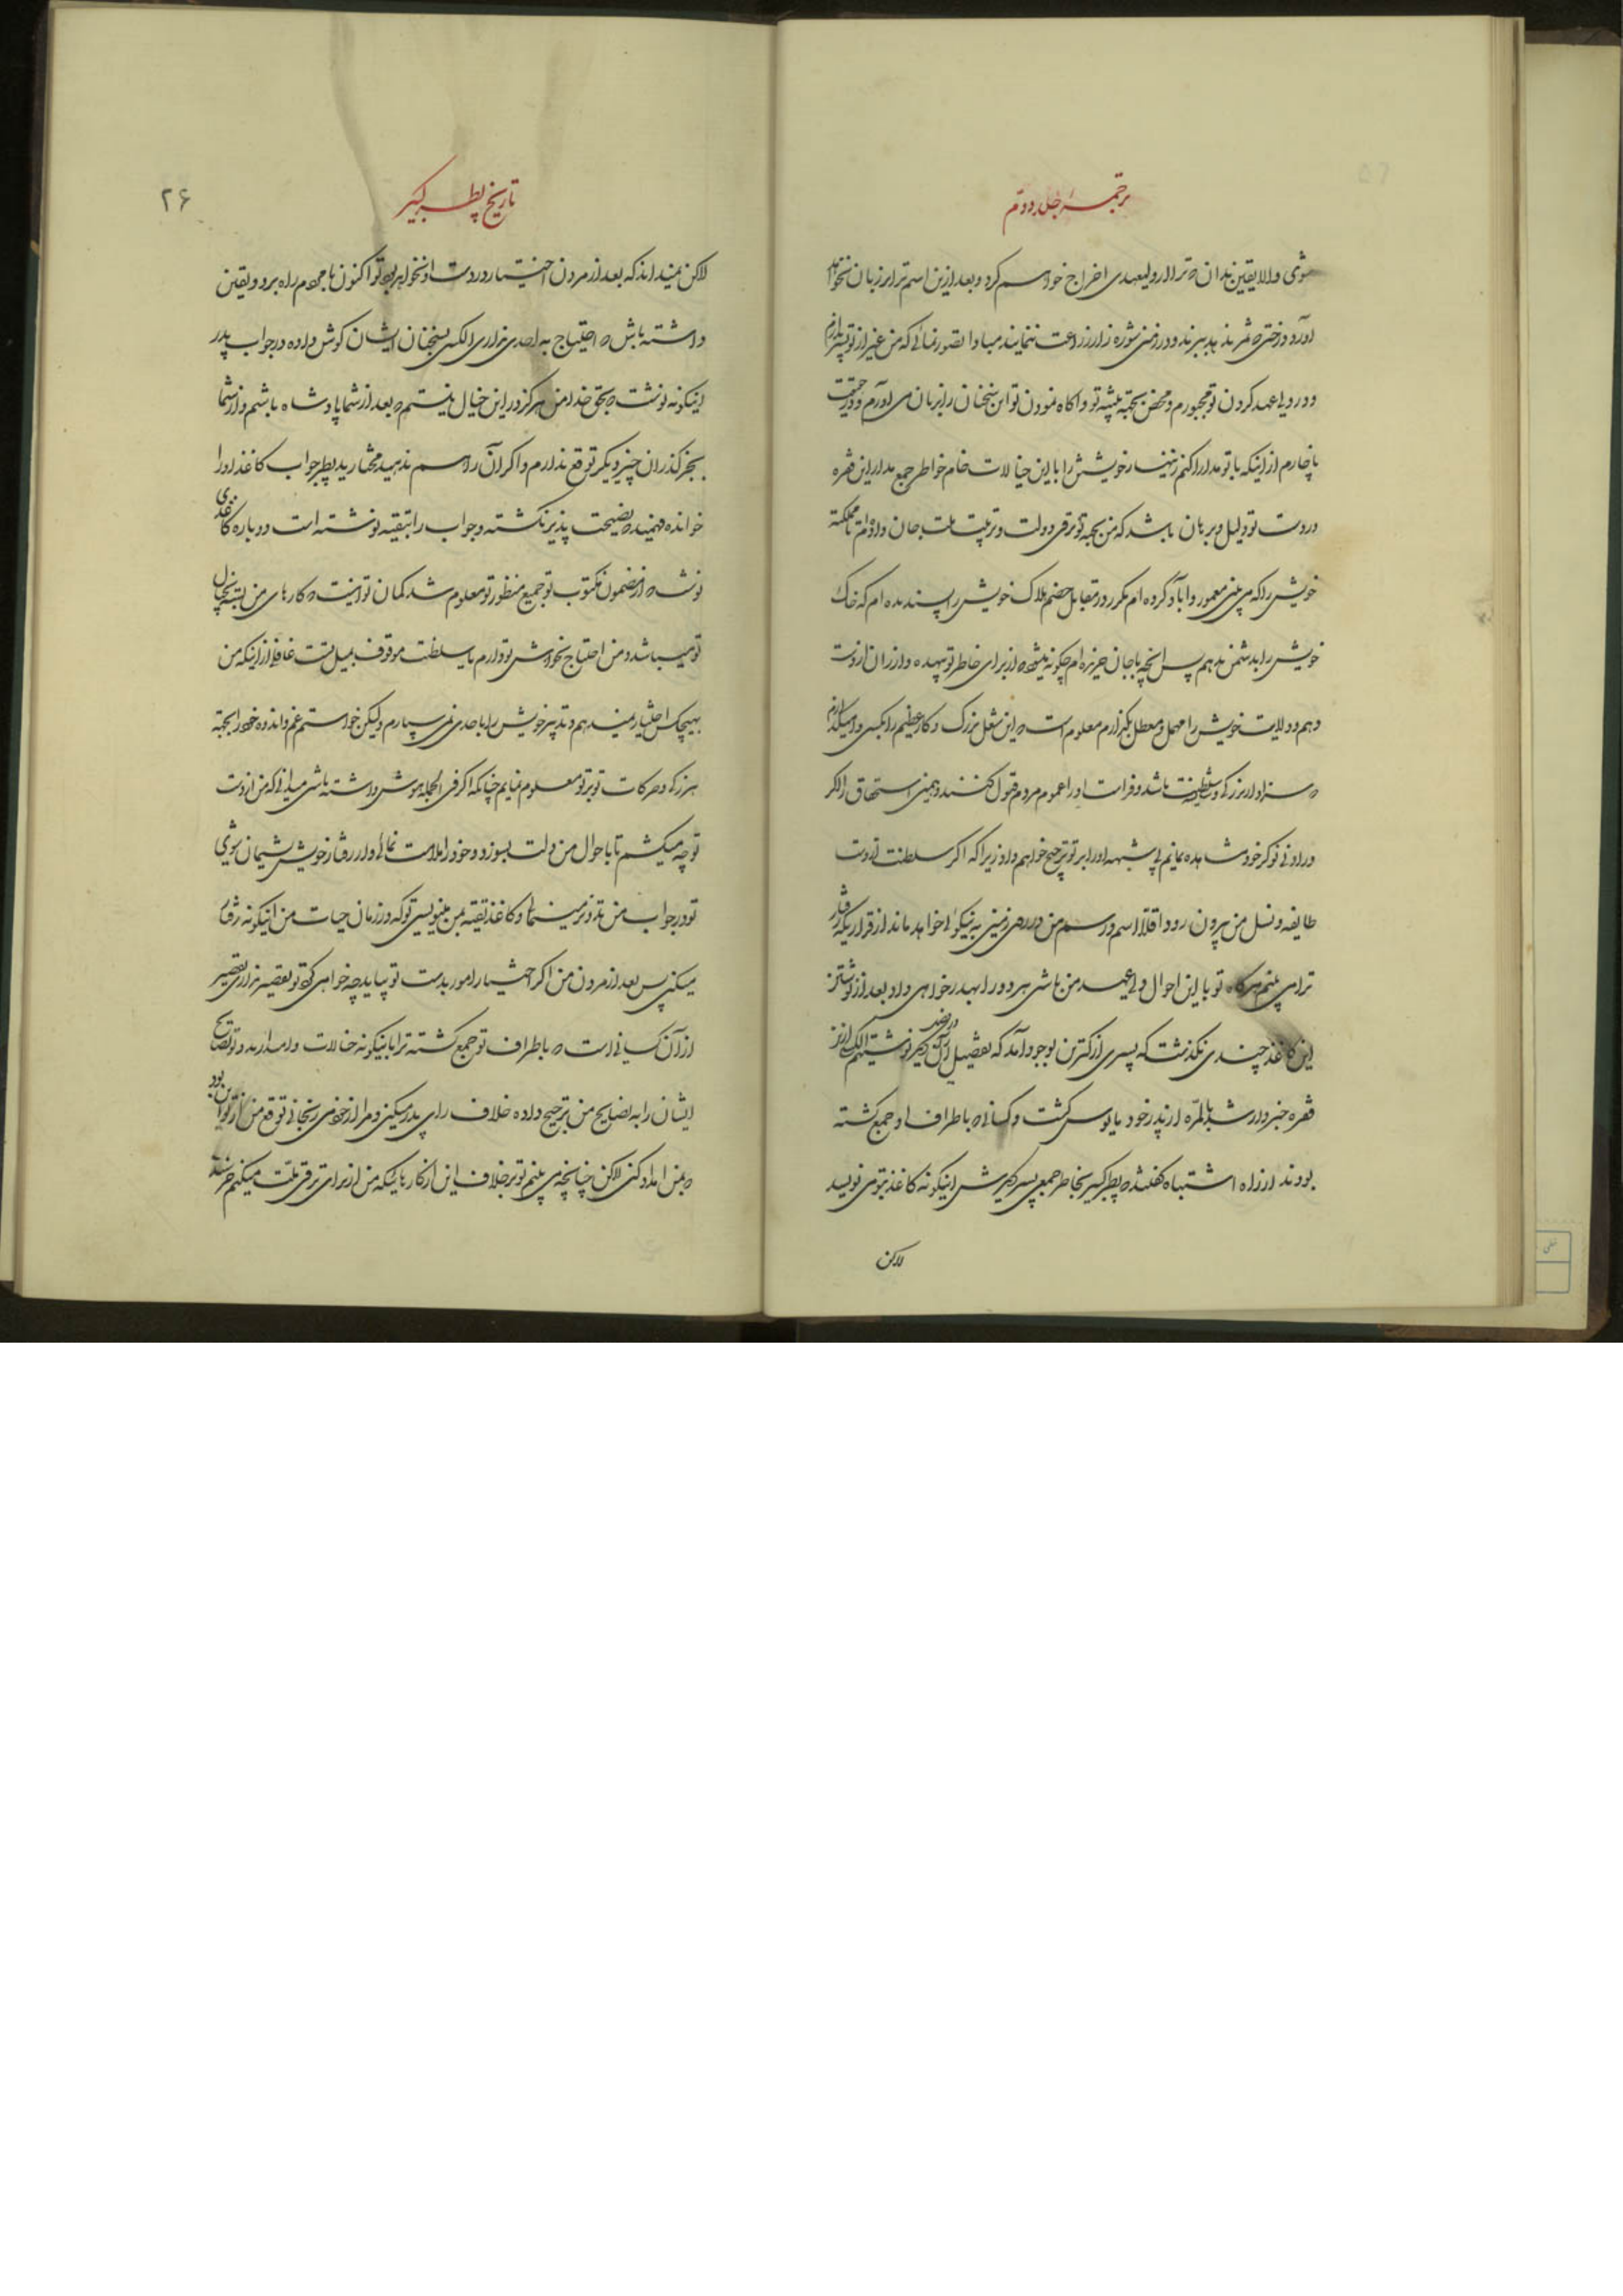 ترجمه جلد دویم
شوی والا یقین بدان که ترا از ولیعهدی اخراج خواهم کرد و بعد ازین اسم ترا بر زبان نخواهم
آورد درختی که ثمر ندهد ببرند و در زمین شوره زار زراعت ننمایند مبادا تصور نمائی که من غیر از تو پسر ندارم
و در ولیعهد کردن تو مجبورم و محض بجهة تنبیه تو و آگاه نمودن تو این سخنان را بر زبان می آورم و در حقیقت
ناچارم از اینکه با تو مدارا کنم زنهار خویش را با این خیالات خام خاطر جمع مدار این فقره
درست تو دلیل و برهان باشد که من بجهة ترقی دولت و تربیت ملت جان داده ام تا مملکت
خویش را که می بینی معمور و آباد کرده ام مکرر در مقابل خصم هلاک خویش را پسندیده ام که خاک
خویش را بدشمن ندهم پس آنچه با جان خریده ام چگونه میشود که از برای خاطر تو بیهوده و ارزان از دست
دهم و ولایت خویش را مهمل و معطل بگذارم معلوم است که این شغل بزرگ و کار عظیم را بکسی وامیگذارم
که سزاوار بزرگی و سلطنت باشد و فراست او را عموم مردم قبول کنند و همین استحقاق را اگر
در ادنی نوکر خود مشاهده نمایم بی شبهه او را بر تو ترجیح خواهم داد زیرا که اگر سلطنت از دست
طایفه و نسل من بیرون رود اقلا اسم و رسم من در روی زمین به نیکوئی خواهد ماند از قراریکه رفتار
ترا می بینم هرگاه تو با این احوال ولیعهد من باشی هر دو را بهدر خواهی داد بعد از نوشتن
این کاغذ چندی نگذشت که پسری از کترین بوجود آمد که تفصیل آن در ضمن دیگر نوشتیم الکسی ازین
فقره خبردار شد بالمره از پدر خود مأیوس گشت و کسانیکه باطراف او جمع گشته
بودند از راه اشتباه گفتند که پطر کبیر بخاطر جمعی پسر دیگرش اینگونه کاغذ بتو می نویسد
لاکن
تاریخ پطر کبیر
۲۶
لاکن نمیداند که بعد از مردن اختیار در دست او نخواهد بود تو اکنون با مردم راه برو و یقین
داشته باش که احتیاج به احدی نداری الکسی بسخنان ایشان گوش داده در جواب پدر
اینگونه نوشت که بحق خدا من هرگز در این خیال نیستم که بعد از شما پادشاه باشم و از شما
بجز گذران چیز دیگر توقع ندارم و اگر آن را هم ندهید مختارید پطر جواب کاغذ او را
خوانده فهمید که نصیحت پذیر نگشته و جواب را بتقیه نوشته است دوباره کاغذی
نوشت که از مضمون مکتوب تو جمیع منظور تو معلوم شد گمان تو اینست که کارهای من بسته بخیال
تو میباشد و من احتیاج بخواهش تو دارم یا سلطنت موقوف بمیل تست غافل از اینکه من
بهیچکس اختیار نمیدهم و تدبیر خویش را باحدی نمی سپارم ولیکن خواستم غم و اندوه خود را بجهة
هرزگی و حرکات تو بر تو معلوم نمایم چنانکه اگر فی الجمله هوش داشته باشی میدانی که من از دست
تو چه میکشم تا با حوال من دلت بسوزد و خود را ملامت نمائی و از رفتار خویش پشیمان شوی
تو در جواب من تزویر مینمائی و کاغذ تقیه بمن مینویسی تو که در زمان حیات من اینگونه رفتار
میکنی پس بعد از مردن من اگر اختیار امور بدست تو بیاید چه خواهی کرد تو تقصیر نداری تقصیر
از آن کسانی است که باطراف تو جمع گشته ترا باینگونه خیالات وامیدارند و تو نصایح
ایشان را به نصایح من ترجیح داده خلاف رأی پدر میکنی و مرا از خود می رنجانی توقع من از تو این بود
که بمن امداد کنی لاکن چنانچه می بینم تو بر خلاف این از کارهائیکه من از برای ترقی ملت میکنم خرسند